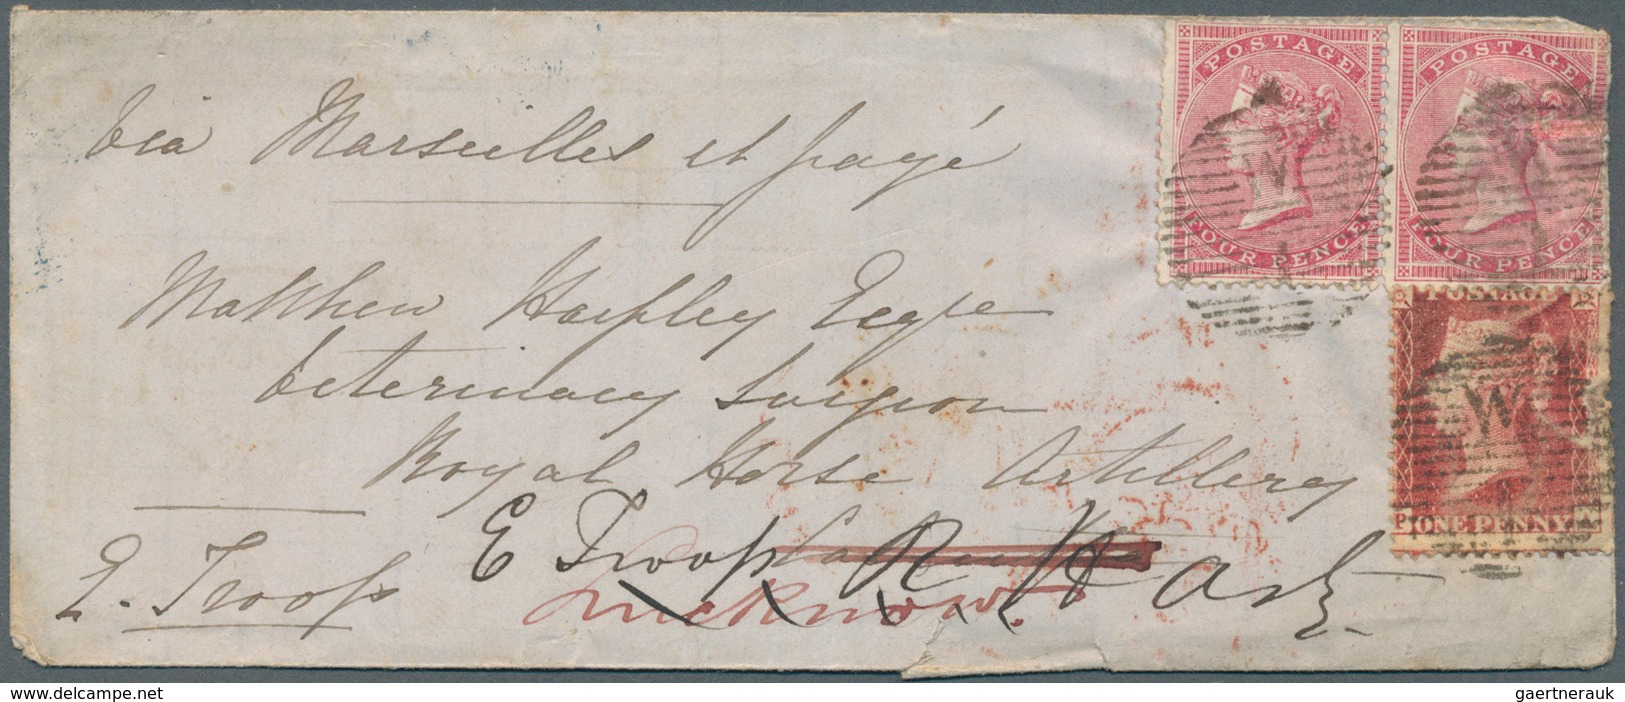 via Marseilles et payé
Matthew Harpley Esqre
Veterinary Surgeon
Royal Horse Artillery
E. Troop
E Troop R H Art
Lucknow.
POSTAGE
FOUR PENCE
POSTAGE
FOUR PENCE
POSTAGE
ONE PENNY
W
W
delcampe.net
gaertnerauk